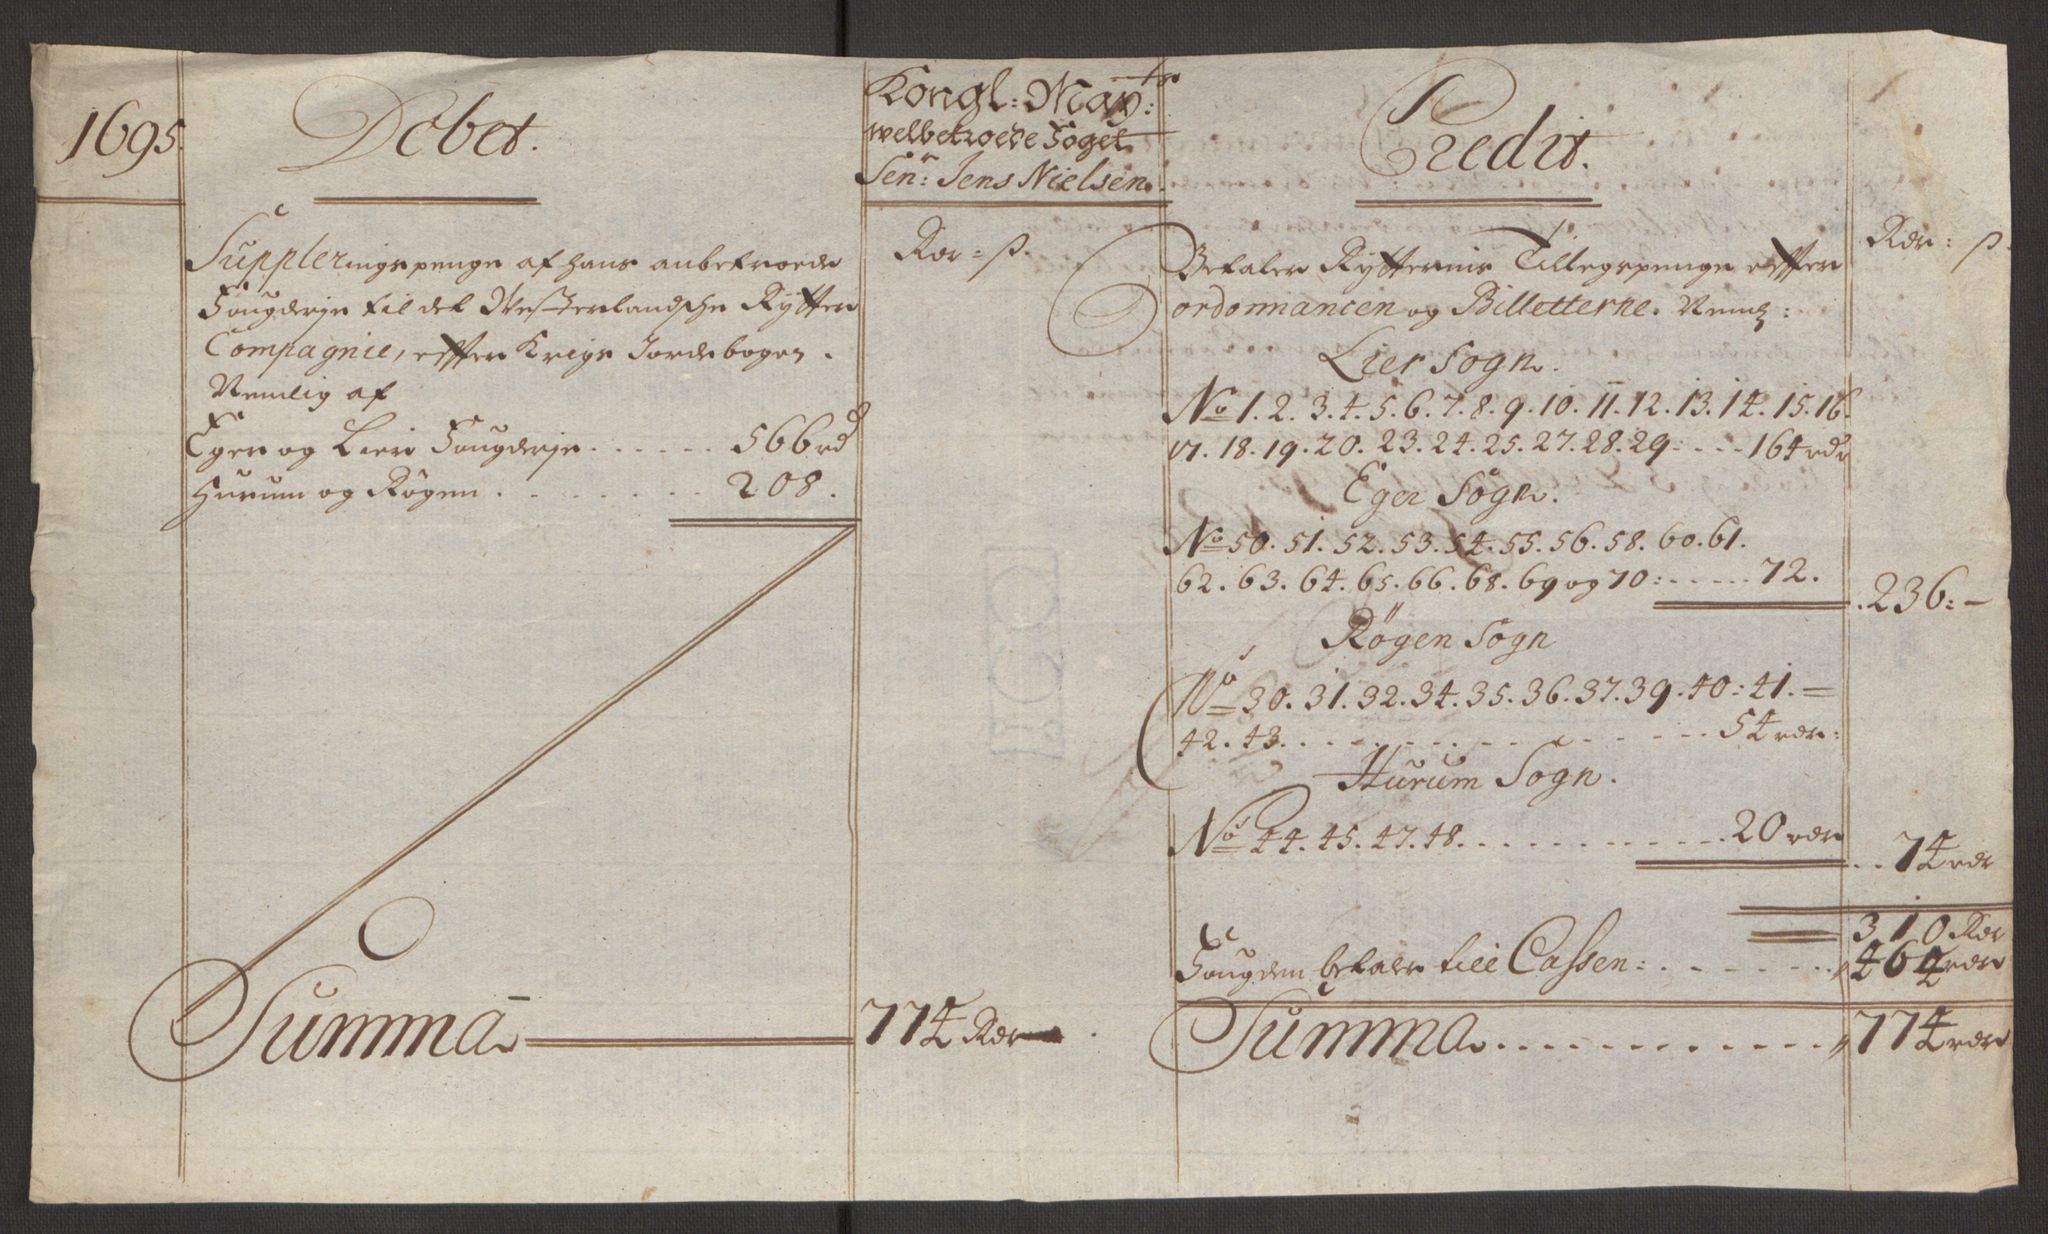 1695.
Debet.
Kongl: Mayts:
welbetroede Foget
Senr: Jens Nielsen.
Rdr: ß.
Suppleringspenge af hans anbetroede
Fougderje til det Westerlandsche Rytter
Compagnie, effter Krigs Jordebogen.
Nemlig af
Eger og Lier Fougderje . . . . . . 566 rd
Hurum og Røgen . . . . . . . . 208.
Summa 774 Rdr
Credit.
Rdr: ß.
Betaler Rytternis Tillegspenge effter
ordonnancen og Billetterne. Neml:
Lier Sogn.
No 1. 2. 3. 4. 5. 6. 7. 8. 9. 10. 11. 12. 13. 14. 15. 16.
17. 18. 19. 20. 23. 24. 25. 27. 28. 29: . . . 164 rdr
Eger Sogn.
No 50. 51. 52. 53. 54. 55. 56. 58. 60. 61.
62. 63. 64. 65. 66. 68. 69 og 70: . . . . . 72.
236: -
Røgen Sogn
No 30. 31. 32. 34. 35. 36. 37. 39. 40: 41. =
42. 43. . . . . . . . . . . . . 54 rdr:
Hurum Sogn.
No 44. 45. 47. 48. . . . . . . . . . . . 20 rdr
. . 74 rdr
310 Rdr
Fougden betaler till Cassen: . . . . . . . 464 rdr
Summa. . . . . . . . . . . . . 774 rdr